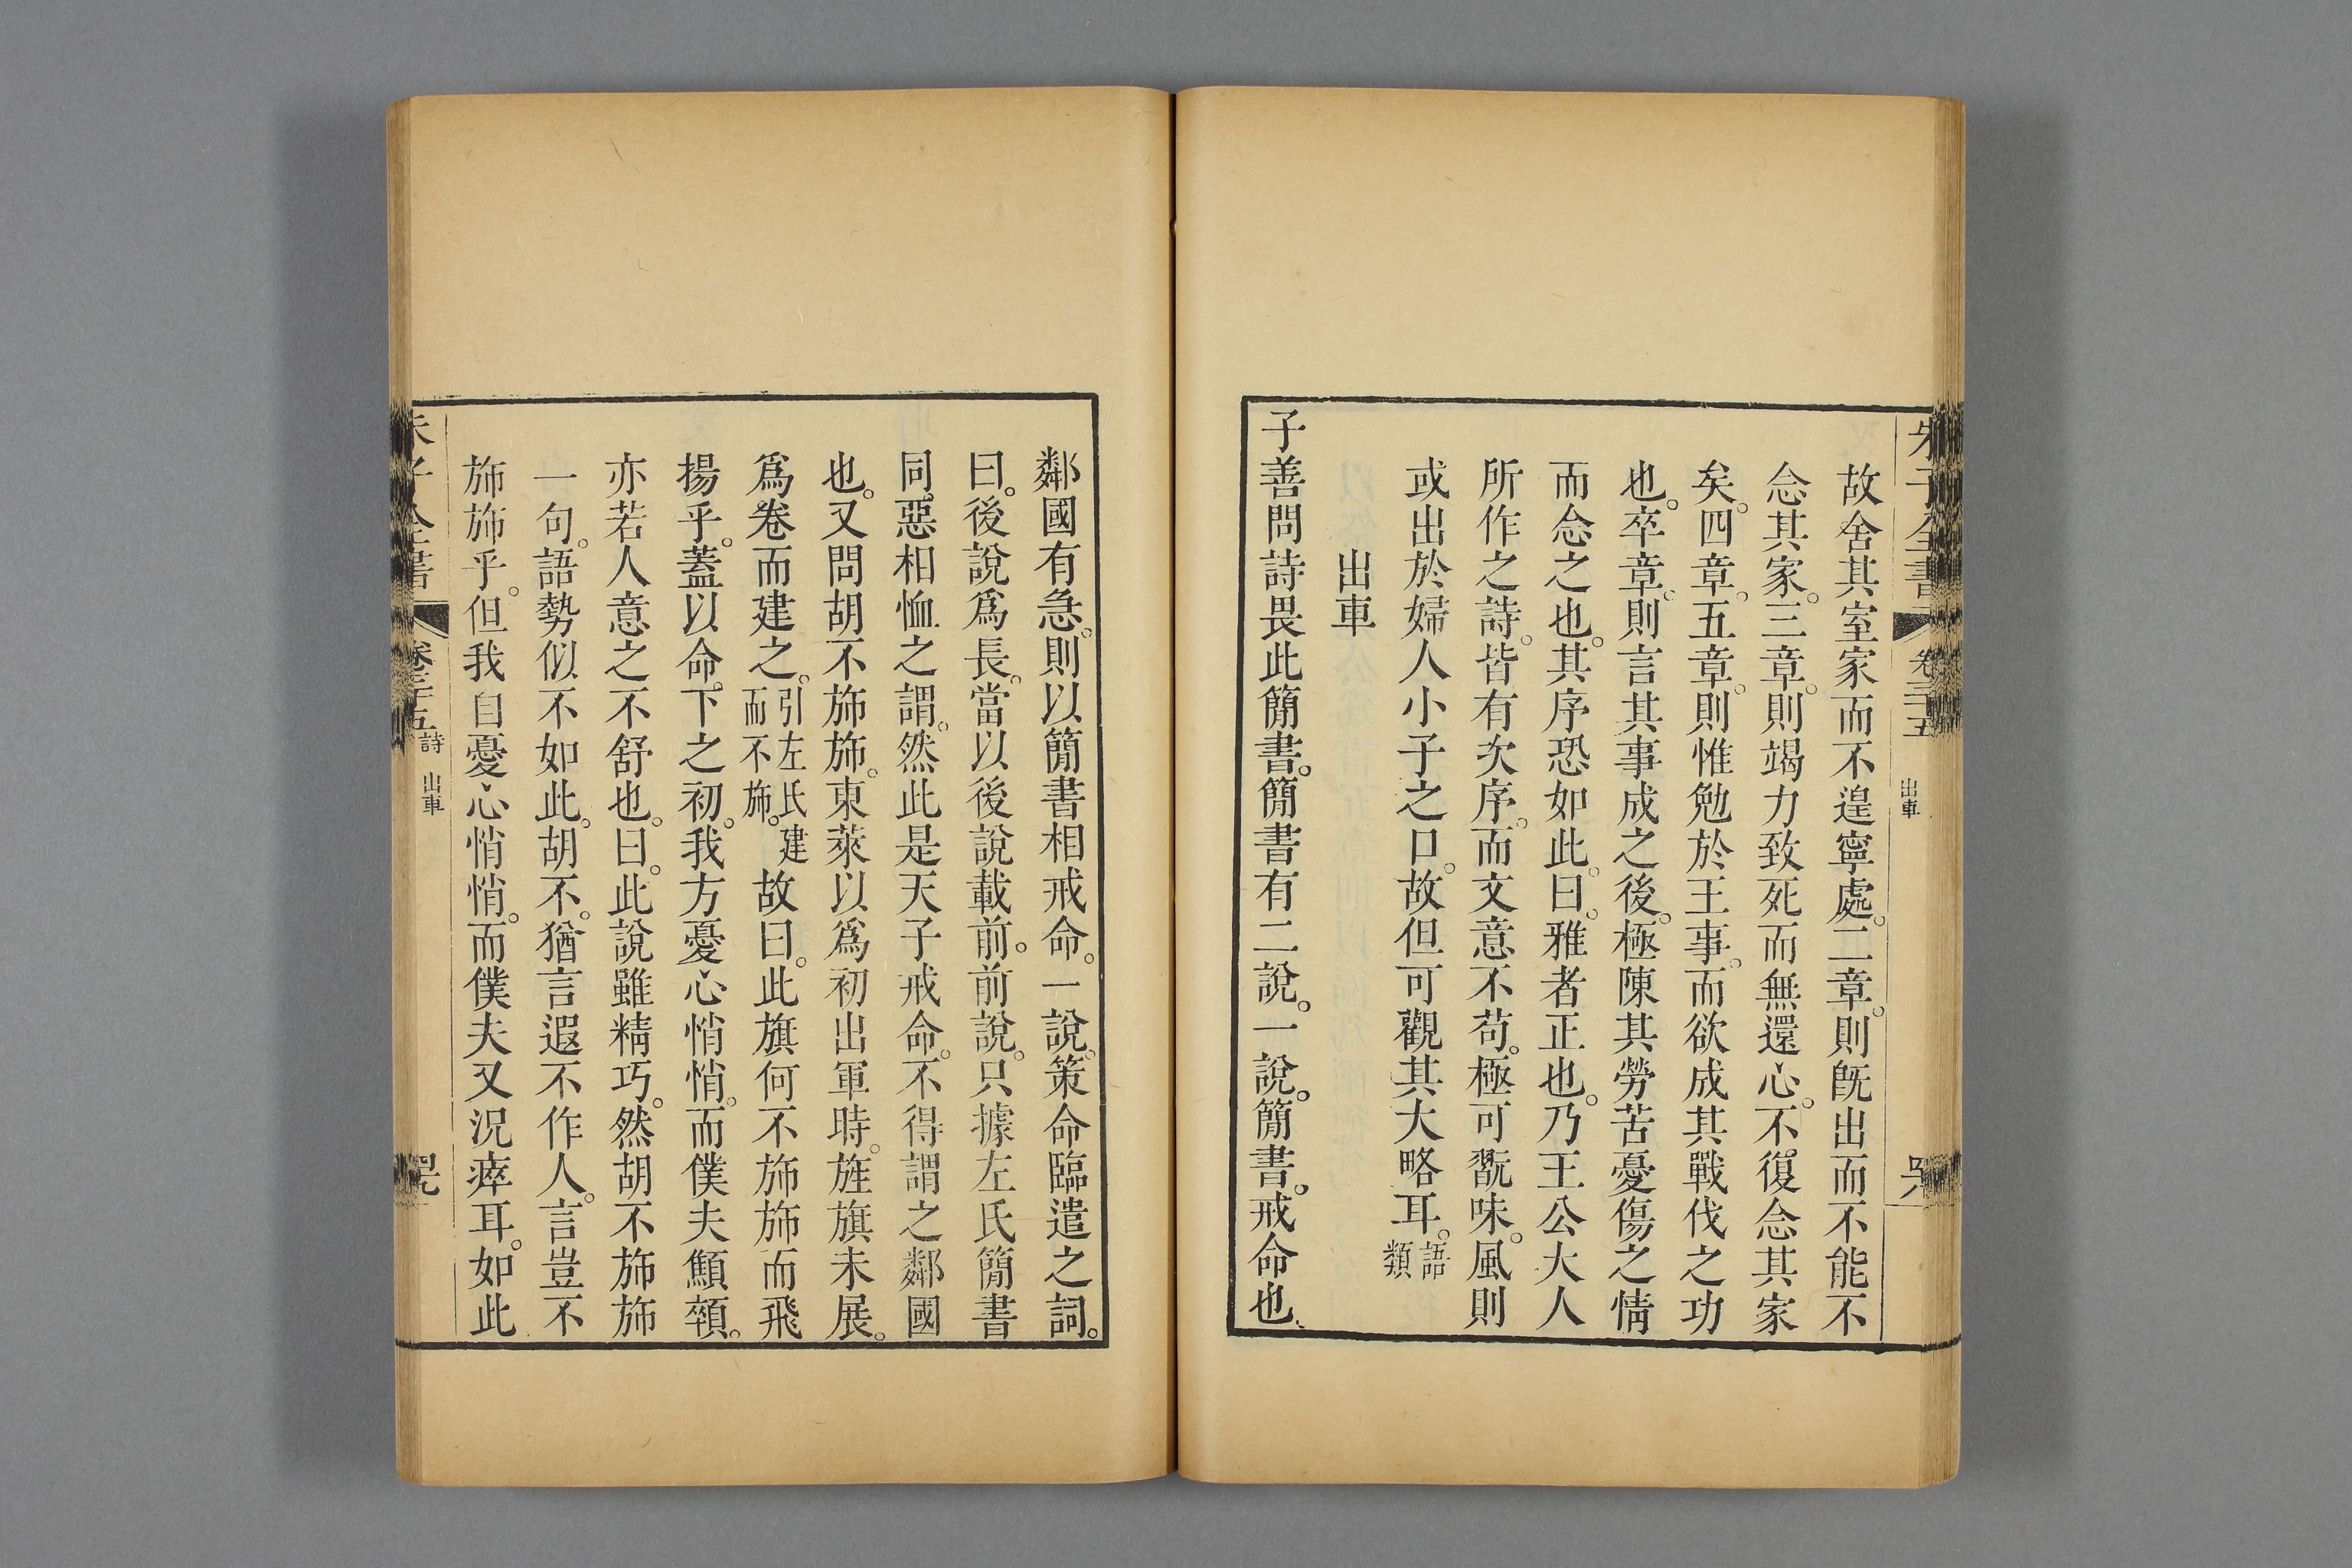 朱子全書 卷三十五 出車
故舍其室家而不遑寧處。二章。則既出而不能不
念其家。三章。則竭力致死而無還心。不復念其家
矣。四章。五章。則惟勉於王事。而欲成其戰伐之功
也。卒章。則言其事成之後。極陳其勞苦憂傷之情
而念之也。其序恐如此。曰。雅者正也。乃王公大人
所作之詩。皆有次序。而文意不苟。極可翫味。風則
或出於婦人小子之口。故但可觀其大略耳。語類
出車
子善問詩畏此簡書。簡書有二說。一說。簡書。戒命也
鄰國有急。則以簡書相戒命。一說。策命臨遣之詞。
曰。後說爲長。當以後說載前。前說。只據左氏簡書
同惡相恤之謂。然此是天子戒命。不得謂之鄰國
也。又問胡不旆旆。東萊以爲初出軍時。旌旗未展。
爲卷而建之。引左氏建而不旆。故曰。此旗何不旆旆而飛
揚乎。蓋以命下之初。我方憂心悄悄。而僕夫顦顇。
亦若人意之不舒也。曰。此說雖精巧。然胡不旆旆
一句。語勢似不如此。胡不。猶言遐不作人。言豈不
旆旆乎。但我自憂心悄悄。而僕夫又況瘁耳。如此
朱子全書 卷三十五 詩 出車